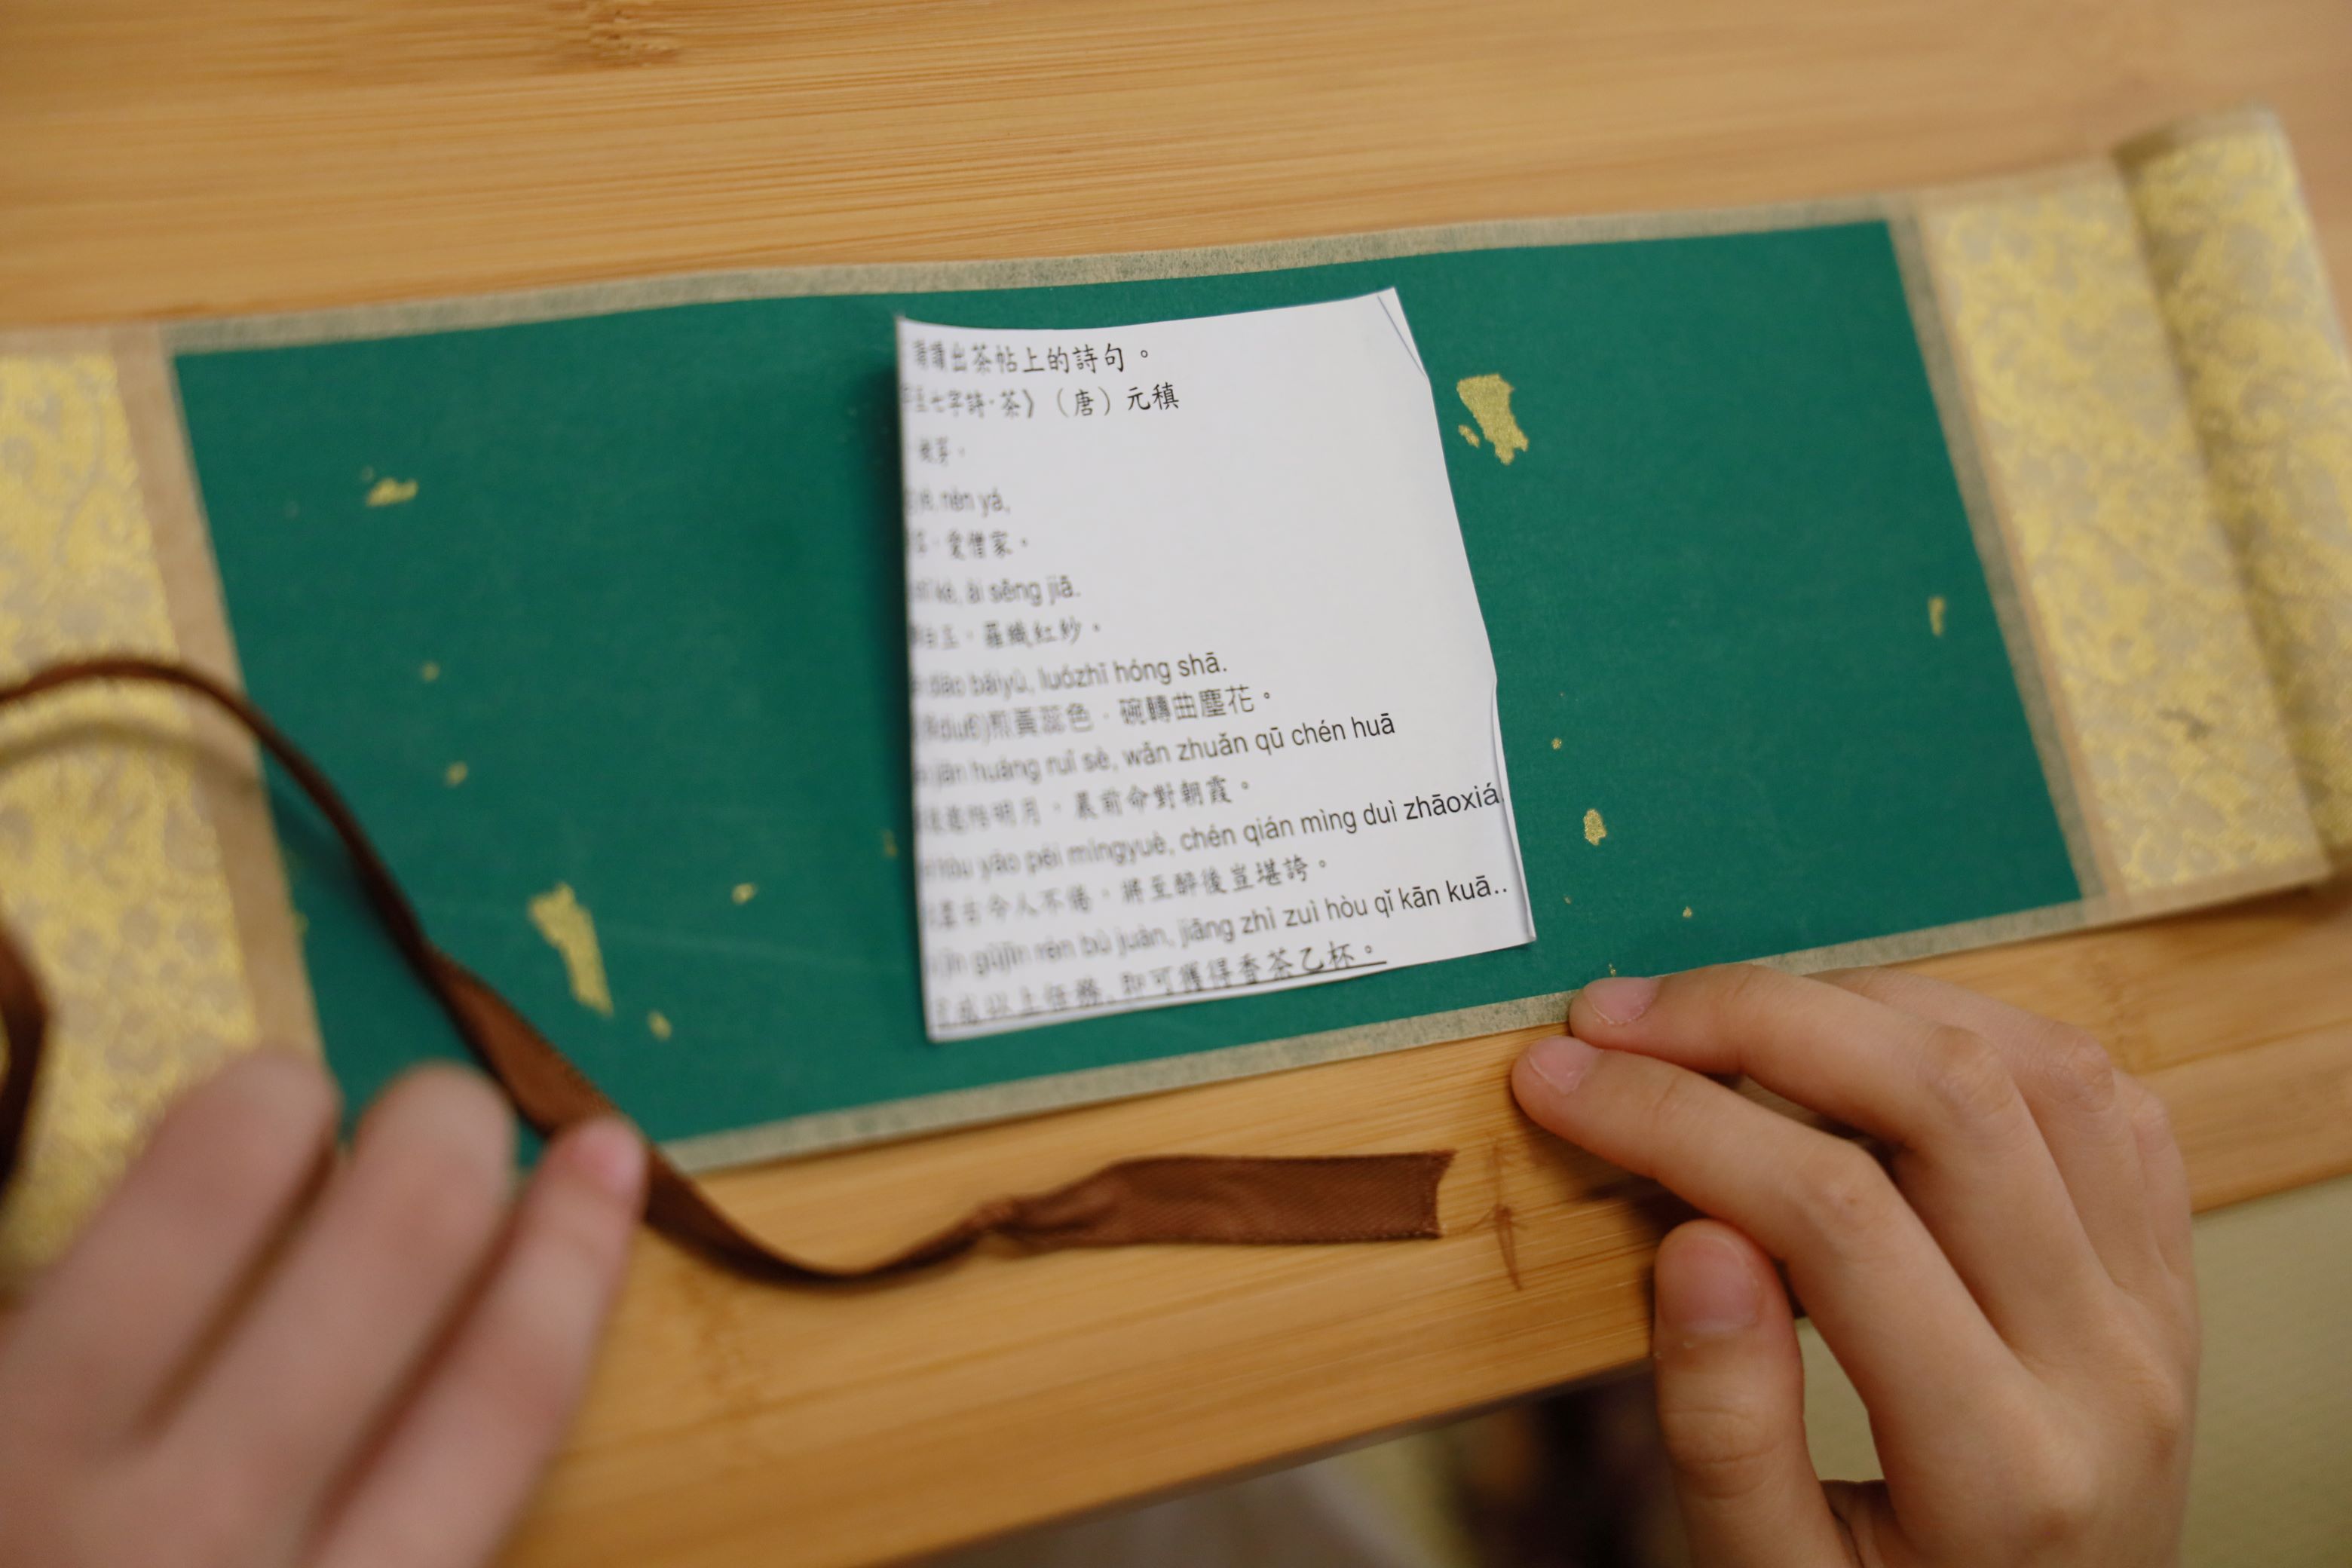 請讀出茶帖上的詩句。
七字詩·茶》（唐）元稹
嫩芽。
nèn yá,
愛僧家。
kè, ài sēng jiā.
白玉，羅織紅紗。
diāo báiyù, luózhī hóng shā.
煎黃蕊色，碗轉曲塵花。
jiān huáng ruǐ sè, wǎn zhuǎn qū chén huā
後邀陪明月，晨前命對朝霞。
hòu yāo péi míngyuè, chén qián mìng duì zhāoxiá
盡古今人不倦，將至醉後豈堪誇。
jìn gǔjīn rén bù juàn, jiāng zhì zuì hòu qǐ kān kuā..
完成以上任務,即可獲得香茶乙杯。